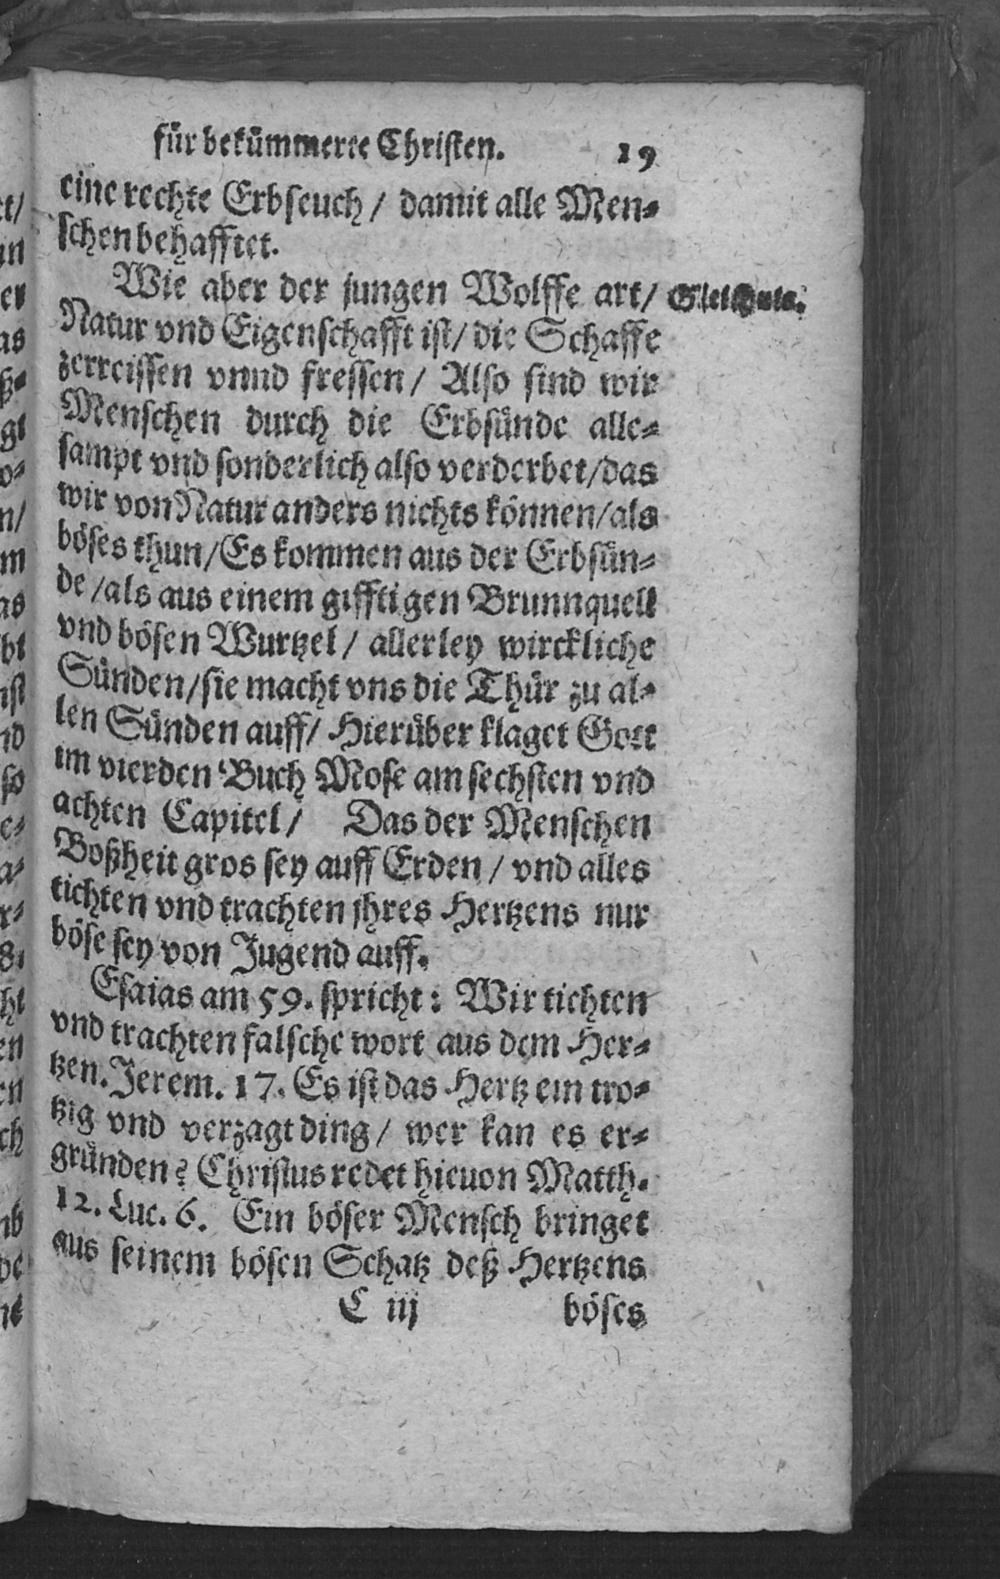 für bekümmerte Christen. 19
eine rechte Erbseuch / damit alle Men-
schen behafftet.
Wie aber der jungen Wolffe art/
Natur vnd Eigenschafft ist/ die Schaffe
zerreissen vnnd fressen / Also sind wir
Menschen durch die Erbsünde alle-
sampt vnd sonderlich also verderbet/das
wir von Natur anders nichts können/als
böses thun/Es kommen aus der Erbsün-
de /als aus einem gifftigen Brunnquell
vnd bösen Wurtzel / allerley wirckliche
Sünden/sie macht vns die Thür zu al-
len Sünden auff/ Hierüber klaget Gott
im vierden Buch Mose am sechsten vnd
achten Capitel/ Das der Menschen
Boßheit gros sey auff Erden / vnd alles
tichten vnd trachten jhres Hertzens nur
böse sey von Jugend auff.
Esaias am 59. spricht: Wir tichten
vnd trachten falsche wort aus dem Her-
tzen. Jerem. 17. Es ist das Hertz ein tro-
tzig vnd verzagt ding/ wer kan es er-
gründen? Christus redet hieuon Matth.
12. Luc. 6. Ein böser Mensch bringet
aus seinem bösen Schatz deß Hertzens
C iij böses